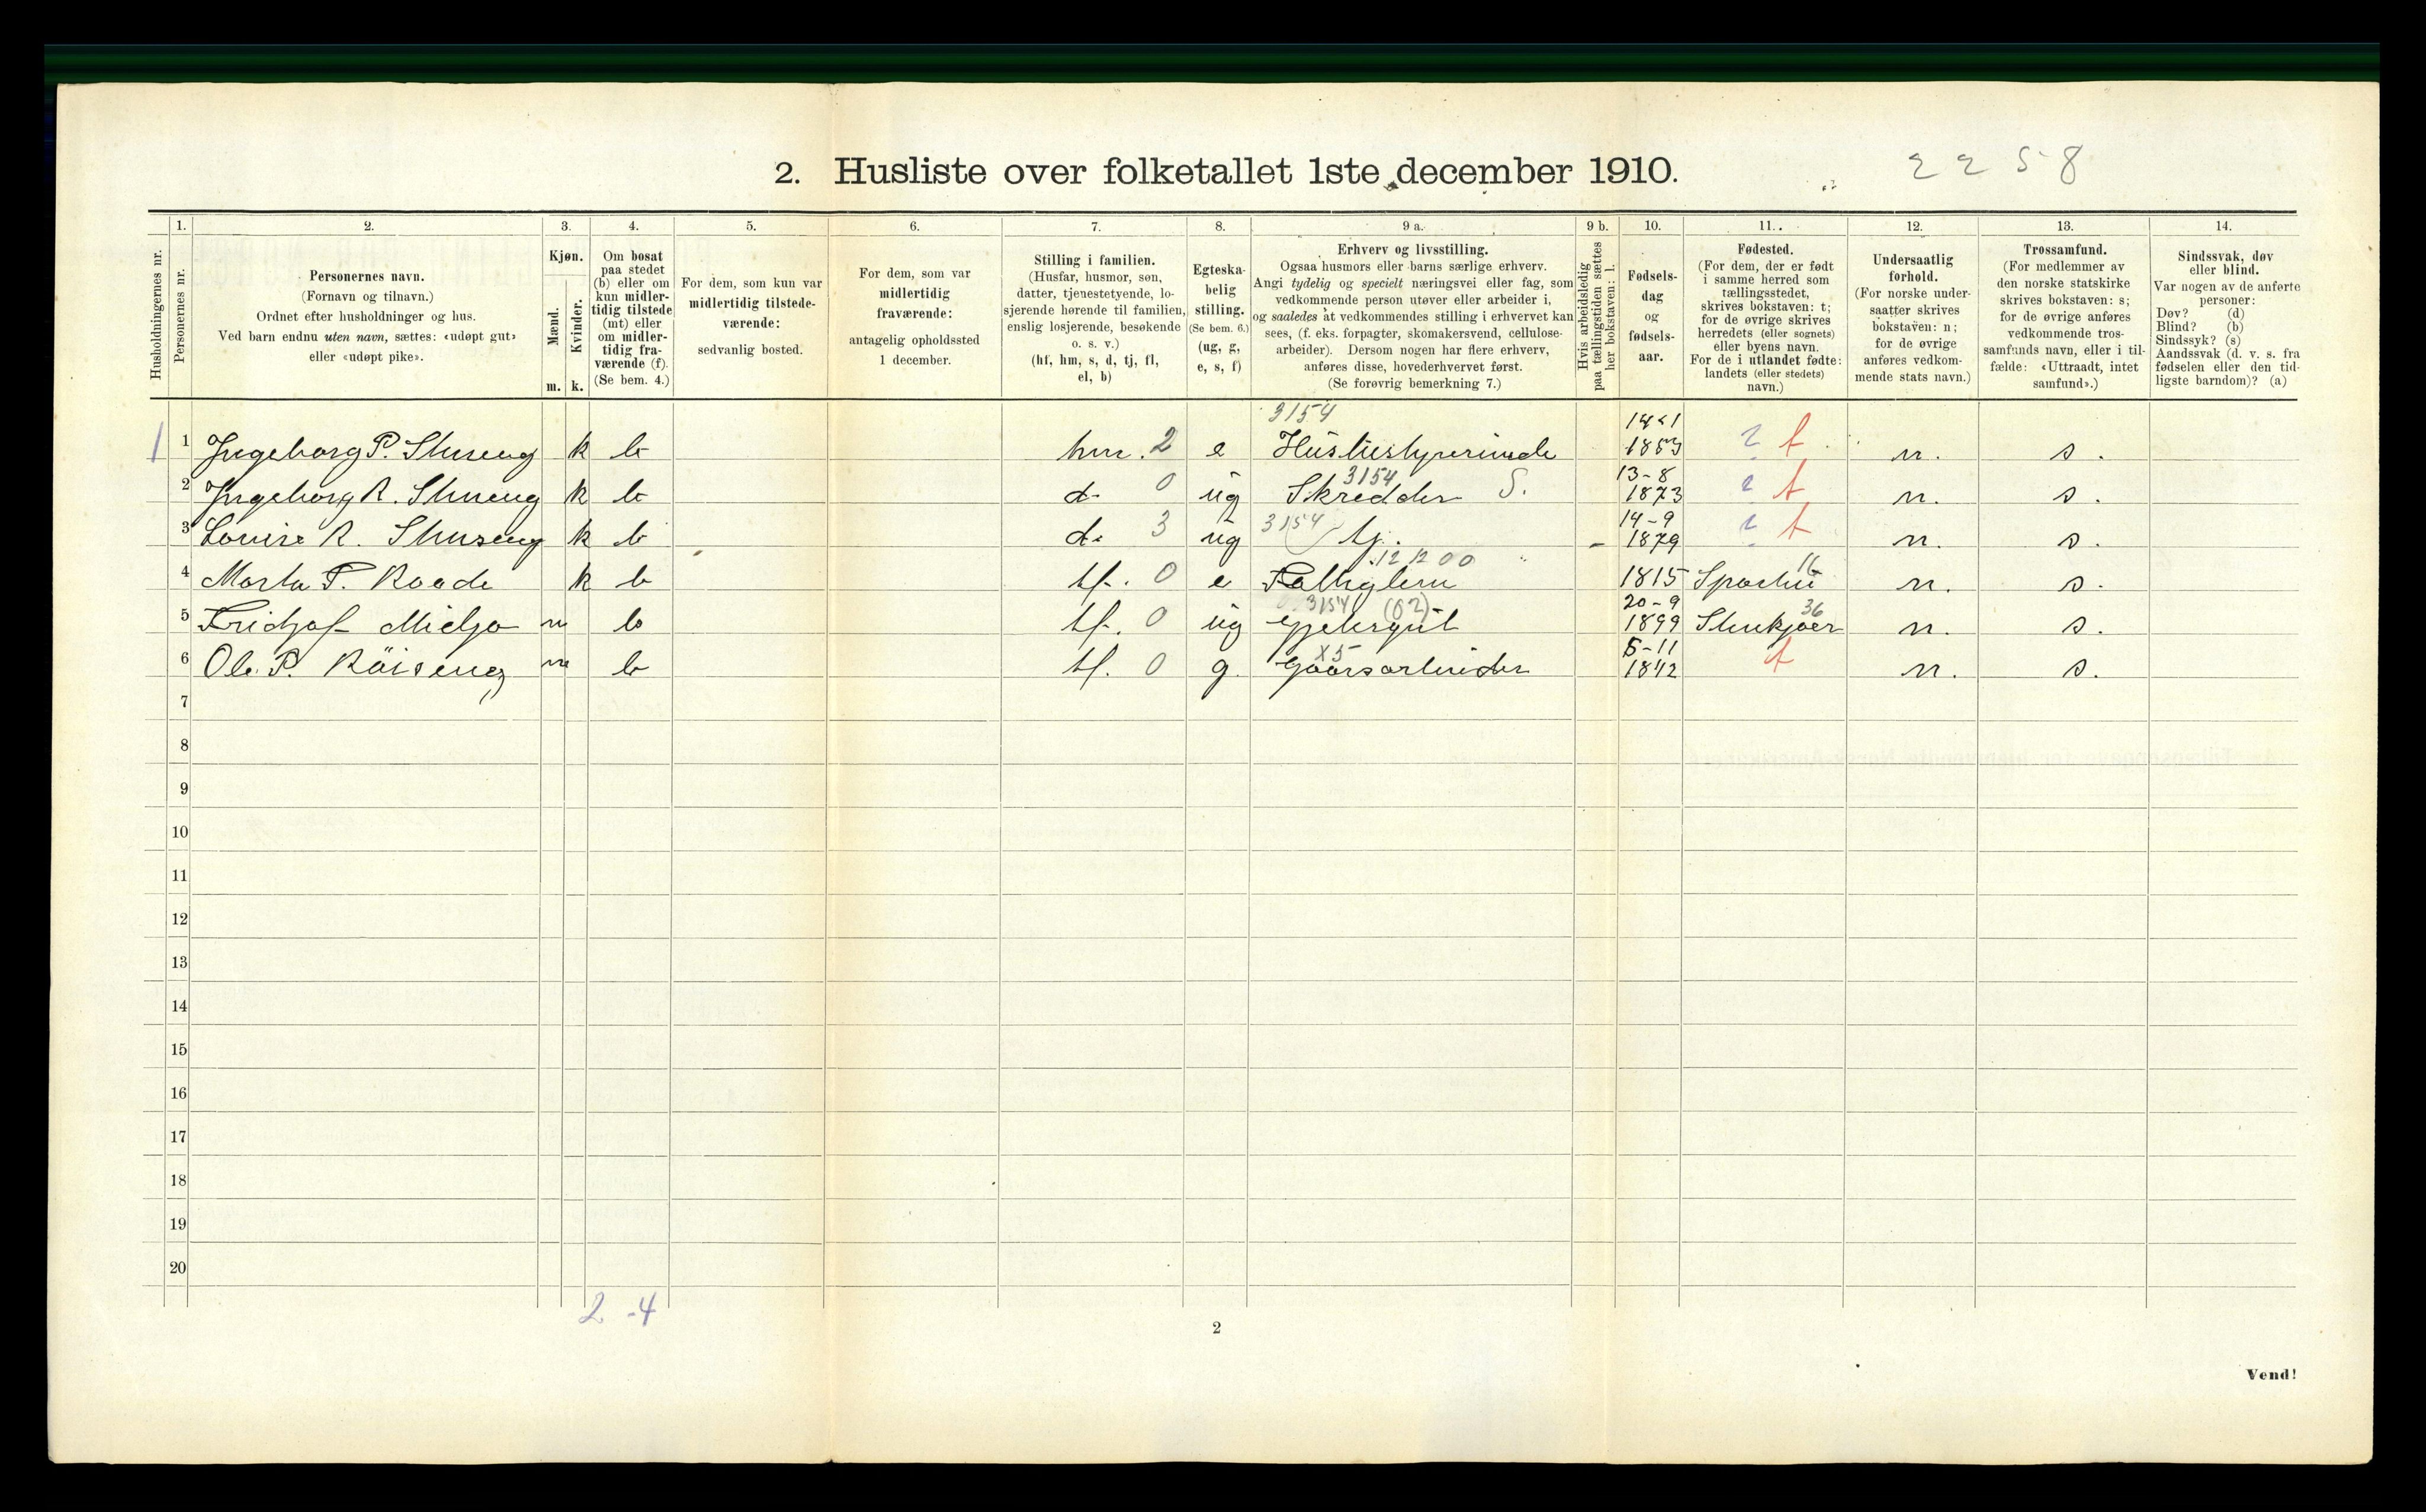 2. Husliste over folketallet 1ste december 1910.
2 2 5 8
1. 2. 3. 4. 5. 6. 7. 8. 9 a. 9 b. 10. 11. 12. 13. 14.
Husholdningernes nr.
Personernes nr.
Personernes navn.
(Fornavn og tilnavn.)
Ordnet efter husholdninger og hus.
Ved barn endnu uten navn, sættes: «udøpt gut»
eller «udøpt pike».
Kjøn.
Mænd.
Kvinder.
m. k.
Om bosat
paa stedet
(b) eller om
kun midler-
tidig tilstede
(mt) eller
om midler-
tidig fra-
værende (f).
(Se bem. 4.)
For dem, som kun var
midlertidig tilstede-
værende:
sedvanlig bosted.
For dem, som var
midlertidig
fraværende:
antagelig opholdssted
1 december.
Stilling i familien.
(Husfar, husmor, søn,
datter, tjenestetyende, lo-
sjerende hørende til familien,
enslig losjerende, besøkende
o. s. v.)
(hf, hm, s, d, tj, fl,
el, b)
Egteska-
belig
stilling.
(Se bem. 6.)
(ug, g,
e, s, f)
Erhverv og livsstilling.
Ogsaa husmors eller barns særlige erhverv.
Angi tydelig og specielt næringsvei eller fag, som
vedkommende person utøver eller arbeider i,
og saaledes at vedkommendes stilling i erhvervet kan
sees, (f. eks. forpagter, skomakersvend, cellulose-
arbeider). Dersom nogen har flere erhverv,
anføres disse, hovederhvervet først.
(Se forøvrig bemerkning 7.)
Hvis arbeidsledig
paa tællingstiden sættes
her bokstaven: l.
Fødsels-
dag
og
fødsels-
aar.
Fødested.
(For dem, der er født
i samme herred som
tællingsstedet,
skrives bokstaven: t;
for de øvrige skrives
herredets (eller sognets)
eller byens navn.
For de i utlandet fødte:
landets (eller stedets)
navn.)
Undersaatlig
forhold.
(For norske under-
saatter skrives
bokstaven: n;
for de øvrige
anføres vedkom-
mende stats navn.)
Trossamfund.
(For medlemmer av
den norske statskirke
skrives bokstaven: s;
for de øvrige anføres
vedkommende tros-
samfunds navn, eller i til-
fælde: «Uttraadt, intet
samfund».)
Sindssvak, døv
eller blind.
Var nogen av de anførte
personer:
Døv? (d)
Blind? (b)
Sindssyk? (s)
Aandssvak (d. v. s. fra
fødselen eller den tid-
ligste barndom)? (a)
3154 14-1
1 1 Ingeborg P. k b hm. 2 e 1853 t n. s.
3154 13-8
2 Ingeborg R. k b d. 0 ug Skredder S. 1873 t n. s.
14-9
3 Louise R. k b d. 3 ug 3154 tj. 1879 t n. s.
12 12 00
4 Marta P. k b 0 e 1815 16 n. s.
3154 (02) 20-9
5 Fridjof m b 0 ug Gjetergut 1899 36 n. s.
X5 5-11
6 Ole P. Röiseng m b 0 g. Gaarsarbeider 1842 t n. s.
7
8
9
10
11
12
13
14
15
16
17
18
19
20
2 - 4
2
Vend!